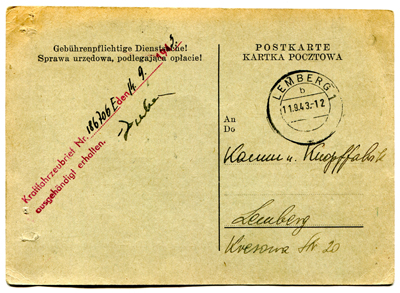 Gebührenpflichtige Dienstsache!
Sprawa urzędowa, podlegająca opłacie!
Kraftfahrzeubrief Nr. 186706 E den 14. 9. 1943.
ausgehändigt erhalten.
POSTKARTE
KARTKA POCZTOWA
LEMBERG 1
b
11.9.43-12
An
Do
Kamm u. Knopffabrik
Lemberg
Kresowa Str 20